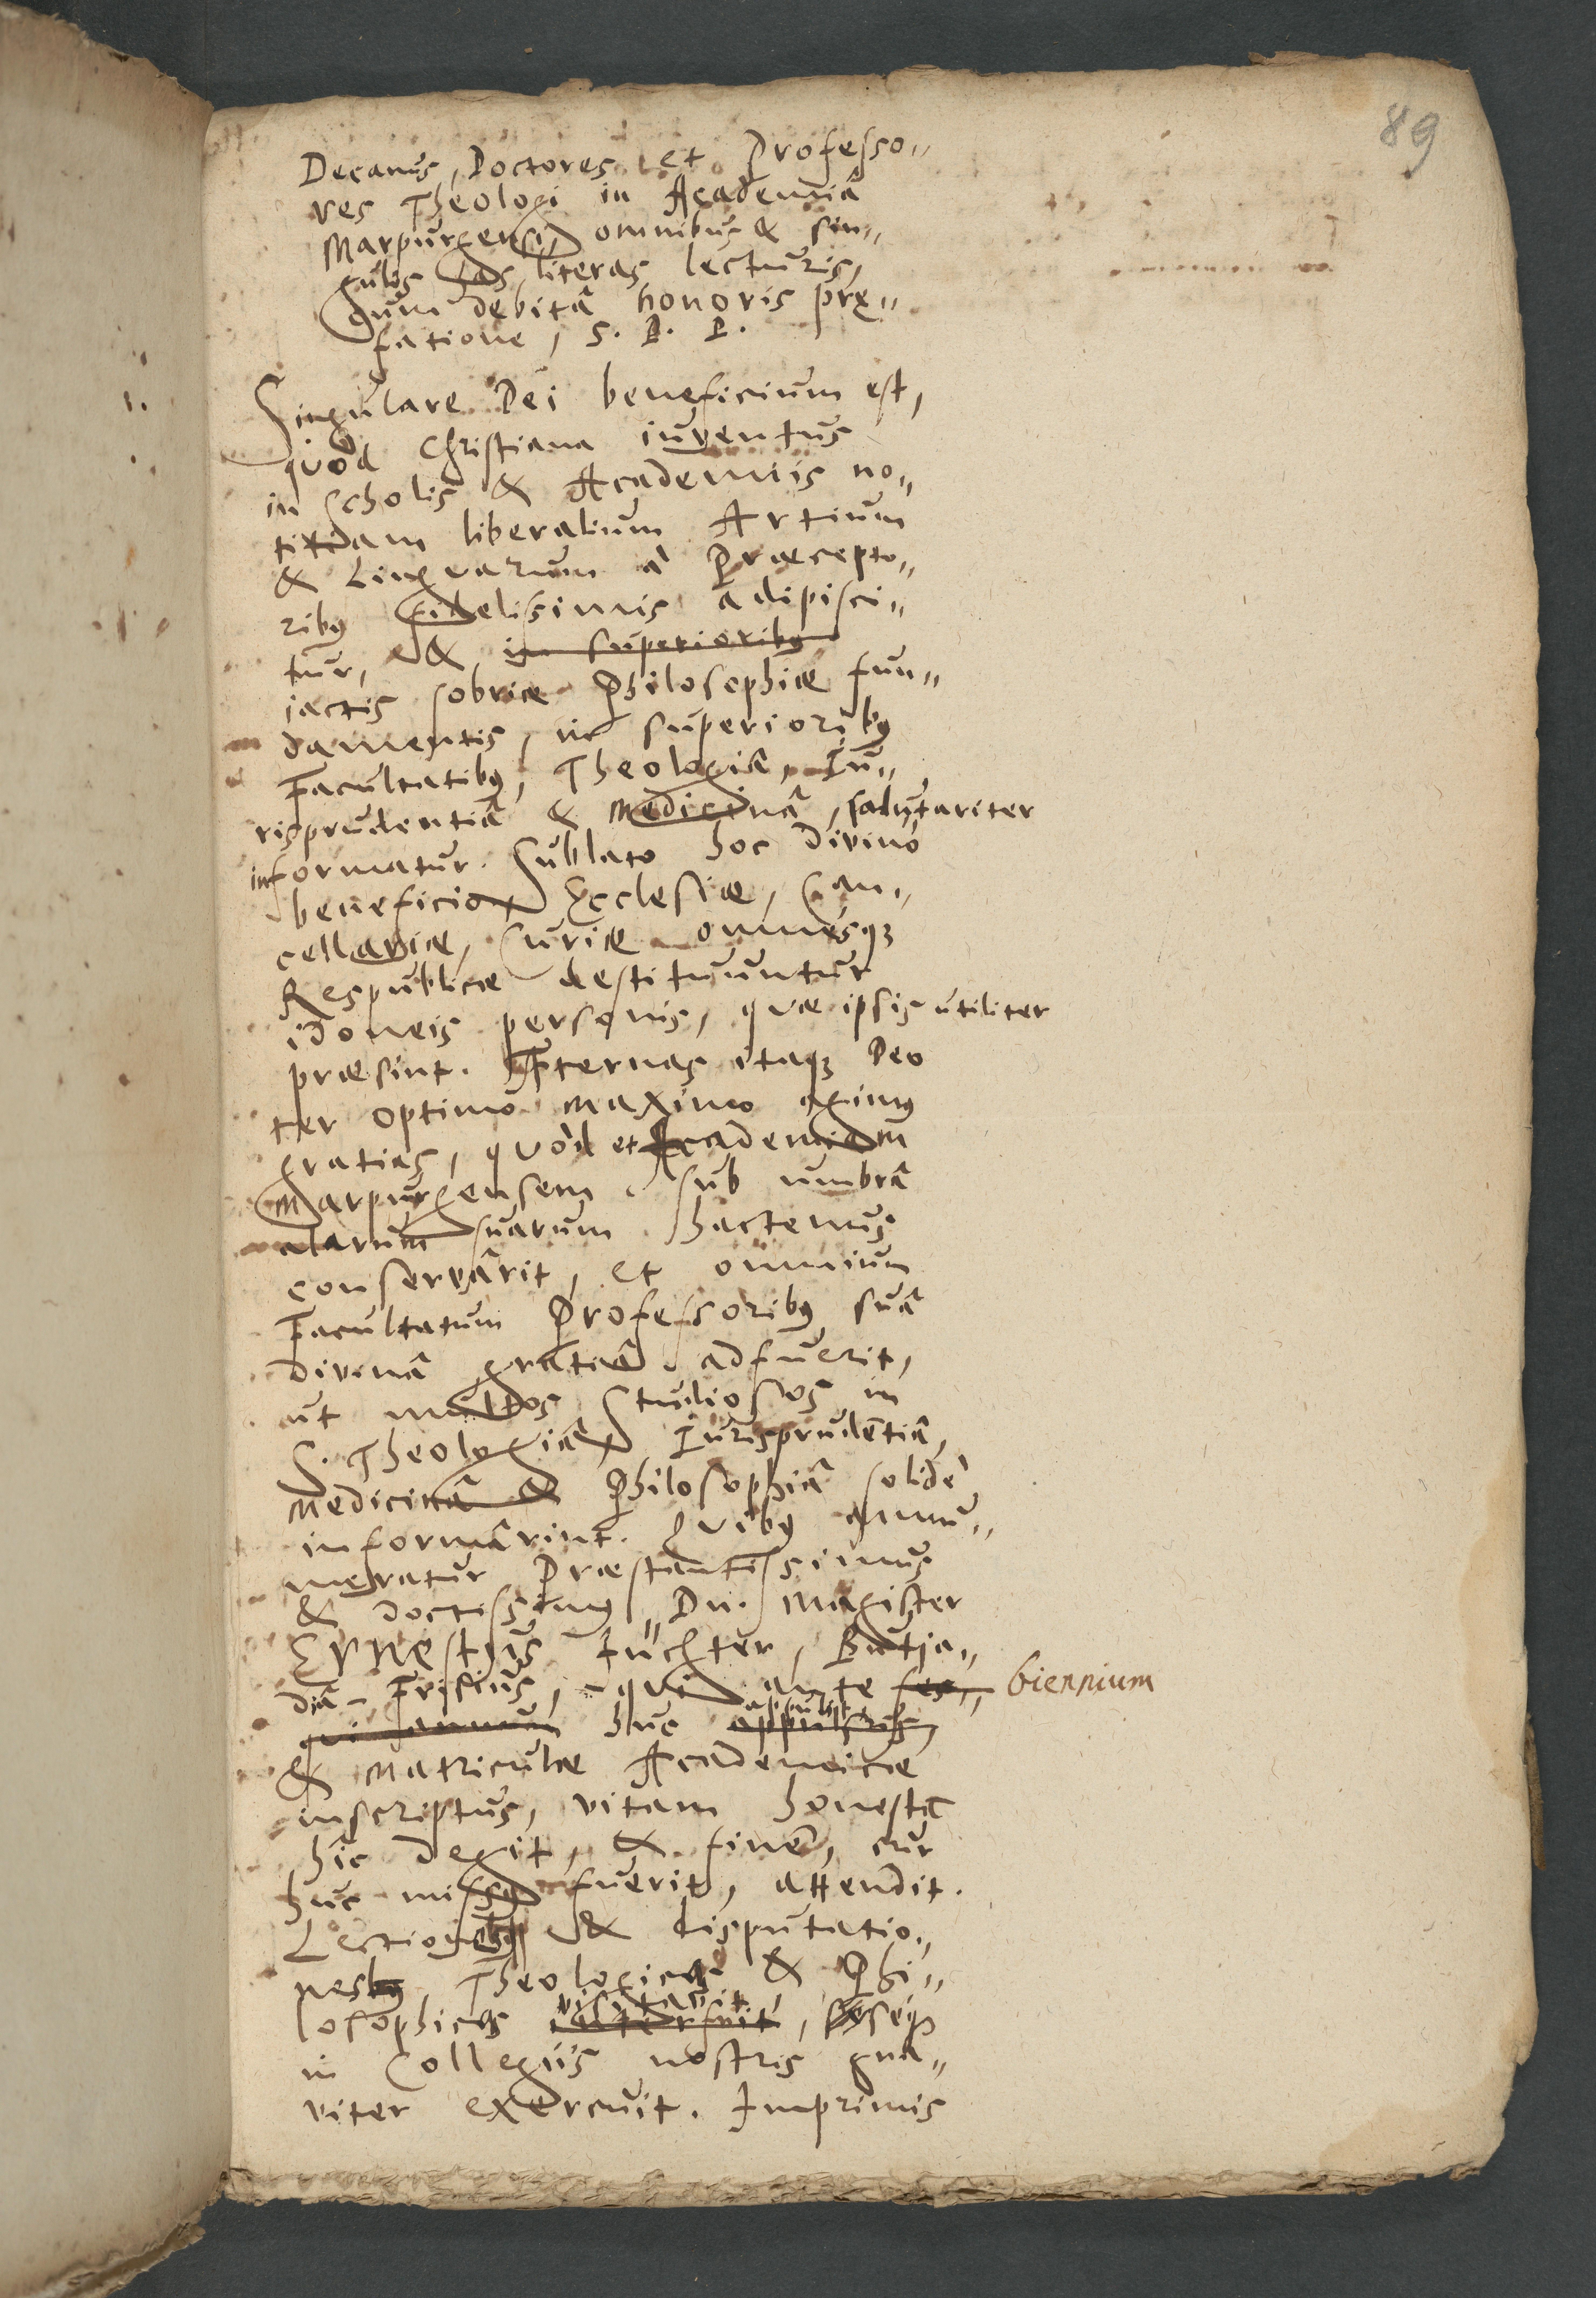 89
Decanus, Doctores et Professo„
res Theologi in Academiâ
Marpurgensi, omnibus & sin„
gulis has literas lecturis,
cum debitâ honoris præ„
fatione, S. P. P.
Singulare Dei beneficium est,
quod Christiana iuventus
in scholis & Academiis no„
titiam liberalium Artium
& Linguarum à Præcepto„
ribus fidelissimis adipisci„
tur, & in superioribus
iactis sobriæ Philosophiæ fun„
damentis, in superioribus
Facultatibus, Theologiâ, Iu„
risprudentiâ & Medicinâ, salutariter
informatur. Sublato hoc divino
beneficio, Ecclesiæ, Can„
cellariæ, Curiæ omnesque
Respublicæ destituuntur
idoneis personis, quæ ipsis utiliter
præsint. Æternas itaque Deo
ter optimo maximo agimus
gratias, quòd et Academiam
Marpurgensem sub umbrâ
alarum suarum hactenus
conservârit, et omnium
Facultatum Professoribus suâ
divinâ gratiâ adfuerit,
ut multos studiosos in
S. Theologiâ, Iurisprudentiâ,
Medicinâ & Philosophiâ solidè
informârint. Quibus annu„
meratur Præstantissimus
& doctissimus Dn. Magister
Ernestus Füchter, Butja„
diâ-Frisius, qui ante ses„ biennium
qui annum huc appulsus, appulit
& Matriculæ Academicæ
inscriptus, vitam honestè
hîc degit, & finem, cur
huc missus fuerit, attendit.
Lectiones & disputatio„
nes Theologicas & Phi„
losophicas interfuit, visitavit, seque
in Collegiis nostris gna„
viter exercuit. Imprimis